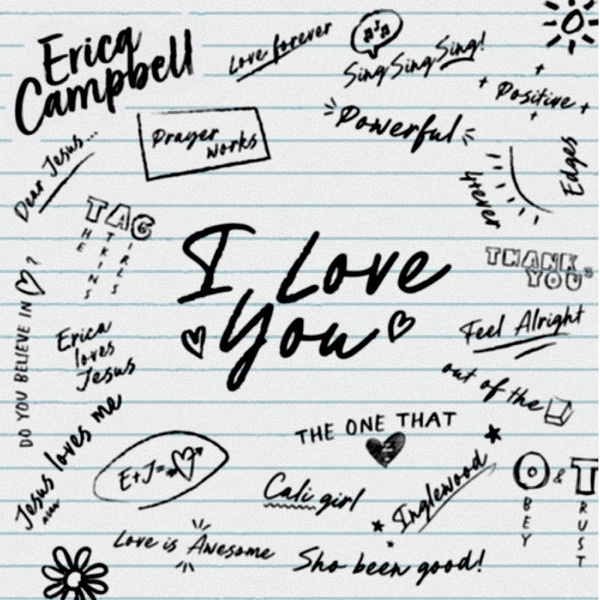 Erica
Campbell
Love forever
a's
Sing Sing Sing!
Positive
Prayer
works
Powerful
Edges
4ever
Dear Jesus...
TAG
HE
TKINS
IRLS
I Love
You
THANK
YOU
DO YOU BELIEVE IN ♡?
Erica
loves
Jesus
Feel Alright
out of the
Jesus loves me
E+J=
THE ONE THAT
Cali girl
Inglewood
O & T
BEY
RUST
Love is Awesome
Sho been good!